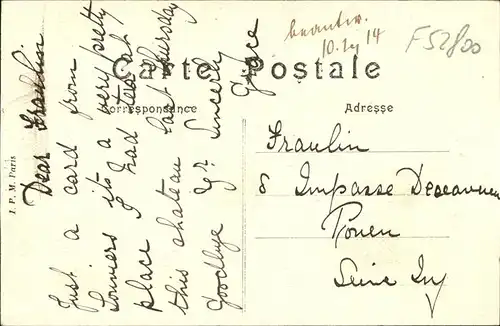 beantw.
10. 14
F52800
Carte Postale
Correspondance
Adresse
J. P. M. Paris
Dear Fraulin
Just a card from
Louviers it's a very pretty
place I had tea at
this chateau last Thursday
Goodbye Yr. Sincerly
Grace
Fraulin
8 Impasse
Rouen
Seine Inf